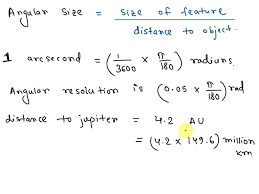 Angular Size = size of feature / distance to object.
1 arcsecond = (1/3600 × π/180) radians.
Angular resolution is (0.05 × π/180) rad
distance to jupiter = 4.2 AU
= (4.2 × 149.6) million km